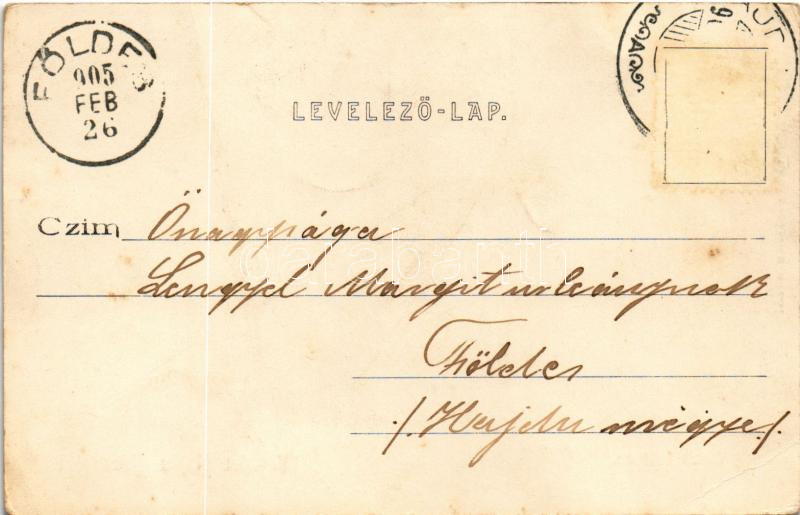 FÖLDES
905
FEB
26
LEVELEZŐ-LAP.
Czim Őnagysága
Lengyel Margit urleánynak
Földes
/. Hajdu megye /.
darabanth